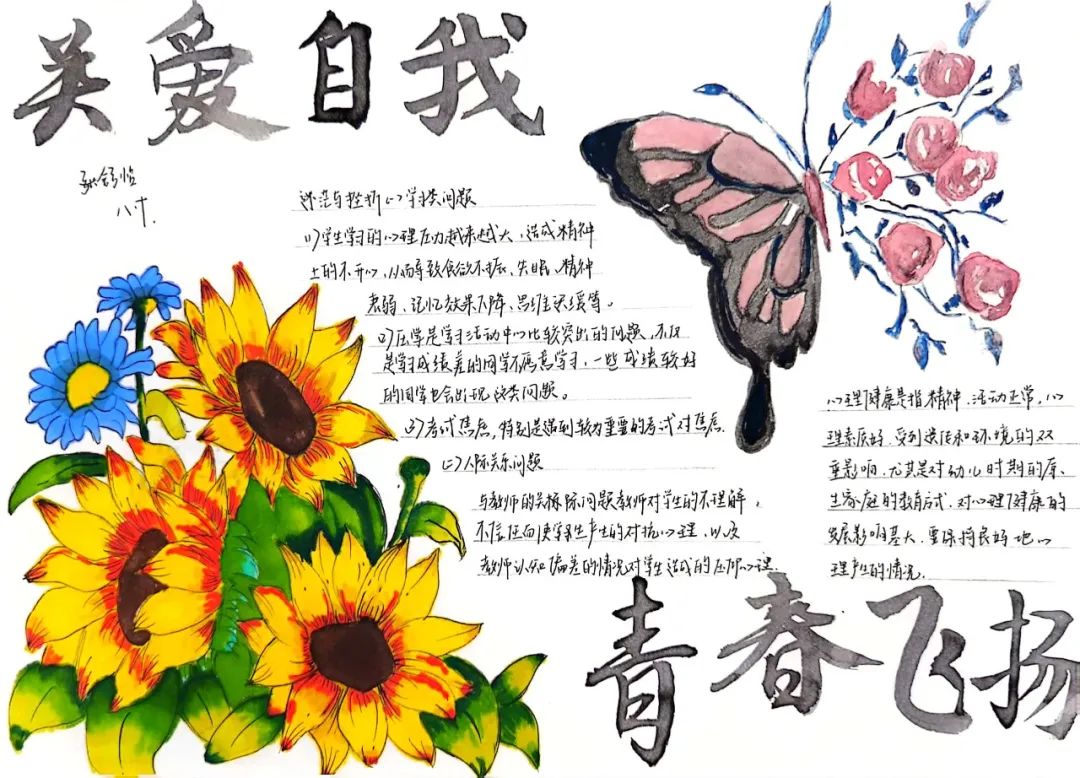 关爱自我
八十.
迷茫与挫折(一)学习类问题
(1)学生学习的心理压力越来越大、造成精神
上的不开心,从而导致食欲不振、失眠、精神
衰弱、记忆效果下降、思维迟缓等。
2)厌学是学习活动中比较突出的问题,不仅
是学习成绩差的同学不愿意学习,一些成绩较好
的同学也会出现这类问题。
3)考试焦虑,特别是遇到较为重要的考试时焦虑.
(二)人际关系问题
与教师的关 际问题教师对学生的不理解、
不信任而使学生产生的对抗心理,以及
教师认知偏差的情况对学生造成的压抑心理.
心理健康是指精神、活动正常,心
理素质好,受到遗传和环境的双
重影响,尤其是对幼儿时期的原
生家庭的教育方式,对心理健康的
发展影响甚大,要保持良好地心
理产生的情况.
青春飞扬